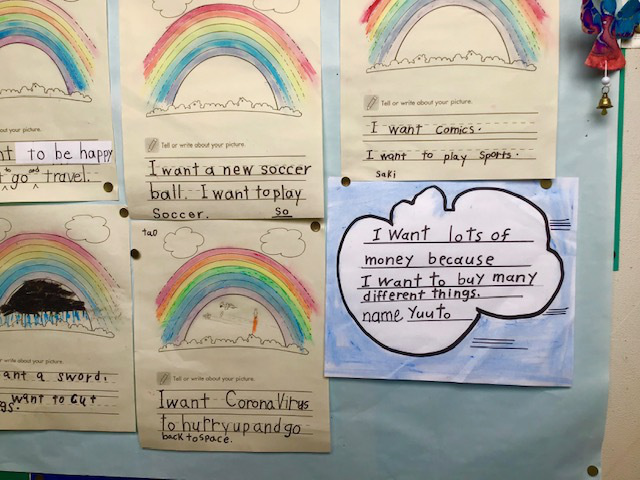 out your picture.
nt to be happy
to and
go travel.
Tell or write about your picture.
I want a new soccer
ball. I want to play
Soccer. So
Tell or write about your picture.
I want comics.
I want to play Sports.
saki
or write about your picture.
ant a sword.
want to cut
gs.
tao
Tell or write about your picture.
I want CoronaVirus
to hurry up and go
back to space.
I want lots of
money because
I want to buy many
different things.
name Yuuto